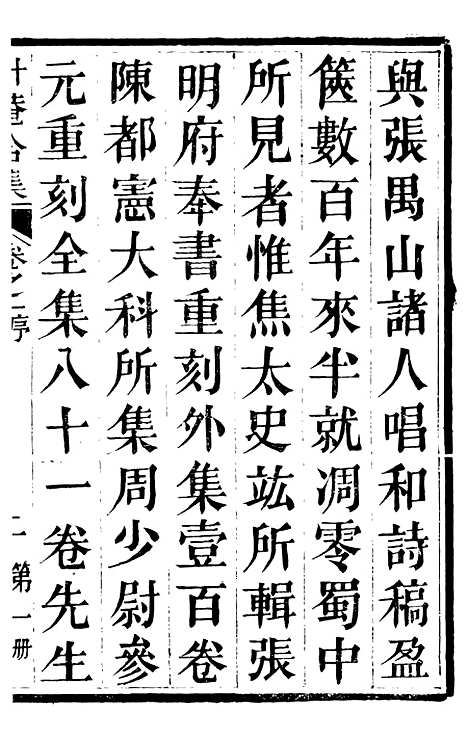 與張禺山諸人唱和詩稿盈
篋數百年來半就凋零蜀中
所見者惟焦太史竑所輯張
明府奉書重刻外集壹百卷
陳都憲大科所集周少尉參
元重刻全集八十一卷先生
升菴合集 卷之一序 二 第一册